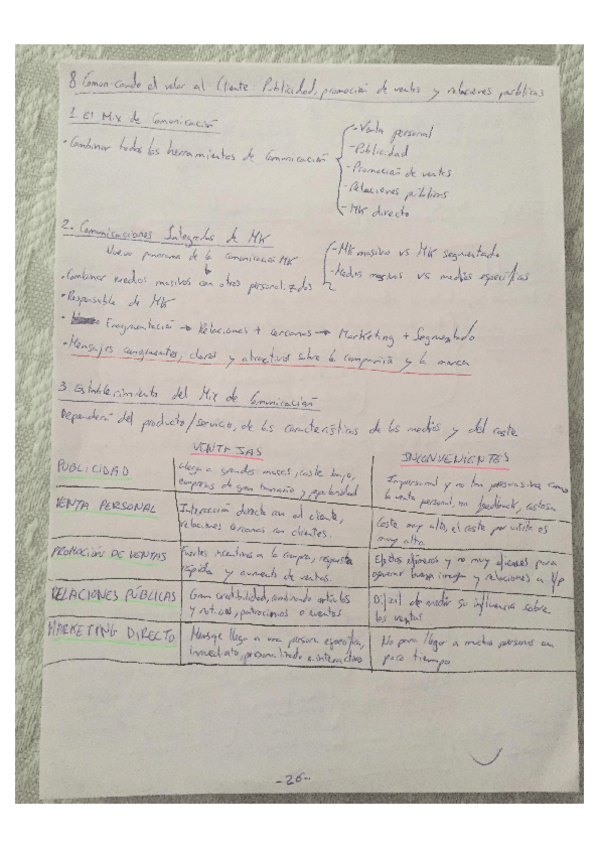 8 Comunicando el valor al Cliente: Publicidad, promoción de ventas y relaciones públicas
1. El Mix de Comunicación
- Combinar todas las herramientas de Comunicación
- Venta personal
- Publicidad
- Promoción de ventas
- Relaciones públicas
- MK directo
2. Comunicaciones Integradas de MK
Nuevo panorama de la comunicación MK
- MK masivo vs MK segmentado
- Medios masivos vs medios específicos
- Combinar medios masivos con otros personalizados
- Responsable de MK
- Fragmentación → Relaciones + cercanas → Marketing + Segmentado
- Mensajes congruentes, claros y atractivos sobre la compañía y la marca
3 Establecimiento del Mix de Comunicación
Dependerá del producto/servicio, de las características de los medios y del coste
VENTAJAS INCONVENIENTES
PUBLICIDAD
Llega a grandes masas, coste bajo,
empresas de gran tamaño y popularidad
Impersonal y no tan persuasiva como
la venta personal, no feedback, costosa
VENTA PERSONAL
Interacción directa con el cliente,
relaciones cercanas con clientes.
Coste muy alto, el coste por visita es
muy alto
PROMOCIÓN DE VENTAS
Fuertes incentivos a la compra, respuesta
rápida y aumento de ventas.
Efectos efímeros y no muy eficaces para
generar buena imagen y relaciones a l/p
RELACIONES PÚBLICAS
Gran credibilidad, combinando artículos
y noticias, patrocinios o eventos
Difícil de medir su influencia sobre
las ventas
MARKETING DIRECTO
Mensaje llega a una persona específica,
inmediato, personalizado e interactivo
No para llegar a muchas personas en
poco tiempo
-26-